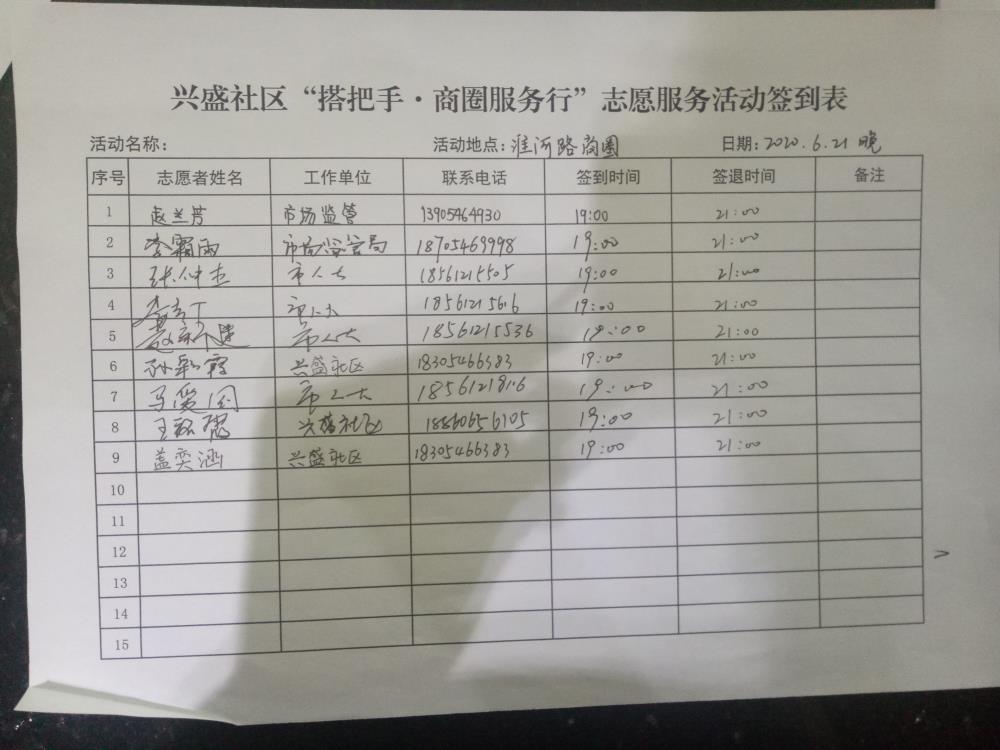 兴盛社区“搭把手·商圈服务行”志愿服务活动签到表
活动名称： 活动地点：淮河路商圈 日期：2020.6.21 晚
序号 志愿者姓名 工作单位 联系电话 签到时间 签退时间 备注
1 赵兰芳 市场监管 13905464930 19:00 21:00
2 李霜雨 市场监管局 18705469998 19:00 21:00
3 张仲杰 市人大 18561215505 19:00 21:00
4 市人大 18561215616 19:00 21:00
5 市人大 18561215536 19:00 21:00
6 孙彩霞 兴盛社区 18305466383 19:00 21:00
7 马爱国 市人大 19:00 21:00
8 兴盛社区 18860656105 19:00 21:00
9 盖奕涵 兴盛社区 18305466383 19:00 21:00
10
11
12
13
14
15